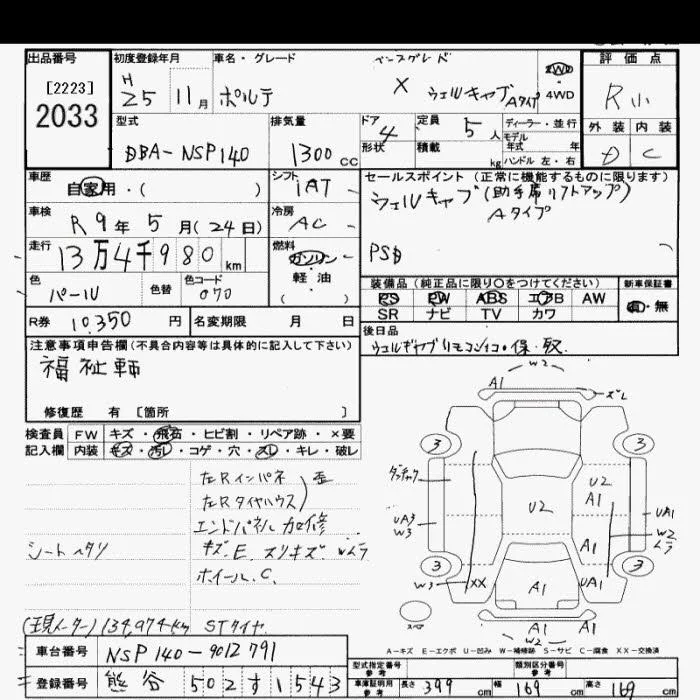 出品番号 初度登録年月 車名・グレード ベースグレード 2WD 評価点
[2223] H 25 11月 ポルテ X ウェルキャブAタイプ 4WD R小
2033
型式 排気量 ドア 定員 ディーラー・並行 外装 内装
DBA-NSP140 1300cc 4 5人 モデル年式 年
形状 積載 kg ハンドル 左・右 D C
車歴 自家用・( ) シフト IAT セールスポイント(正常に機能するものに限ります)
ウェルキャブ(助手席リフトアップ)
Aタイプ
車検 R9年5月(24日) 冷房 AC
走行 13万4千980km 燃料 ガソリン 軽・油 ( )
PSD
色 パール 色替 色コード 070
装備品(純正品に限り○をつけてください) 新車保証書
PS PW ABS エアB AW 有・無
SR ナビ TV カワ
R券 10,350円 名変期限 月 日
後日品
ウェルキャブリモコン・保・取
注意事項申告欄(不具合内容等は具体的に記入して下さい)
福祉車両
修復歴 有 [箇所 ]
検査員 FW キズ・飛石・ヒビ割・リペア跡・×要
記入欄 内装 キズ・汚レ・コゲ・穴・スレ・キレ・破レ
左Rインパネ
左Rタイヤハウス 歪
エンドパネル加修
シートヘタリ キズ.E.スリキズ.Wムラ
ホイール.C.
(現メーター)134,974km STタイヤ
W2
A1 ズレ
3 3
U2
U2 A1
UA3 W3
UA1
W2 ムラ
A1
3 3
W3 XX A1 UA1
スペア
A1 W2 A1
A-キズ E-エクボ U-凹み W-補修跡 S-サビ C-腐食 XX-交換済
車台番号 NSP140-9012791
登録番号 熊谷 502す1543
型式指定番号 参考 類別区分番号 参考
車庫証明用 参考 長さ 399cm 幅 169cm 高さ 169cm